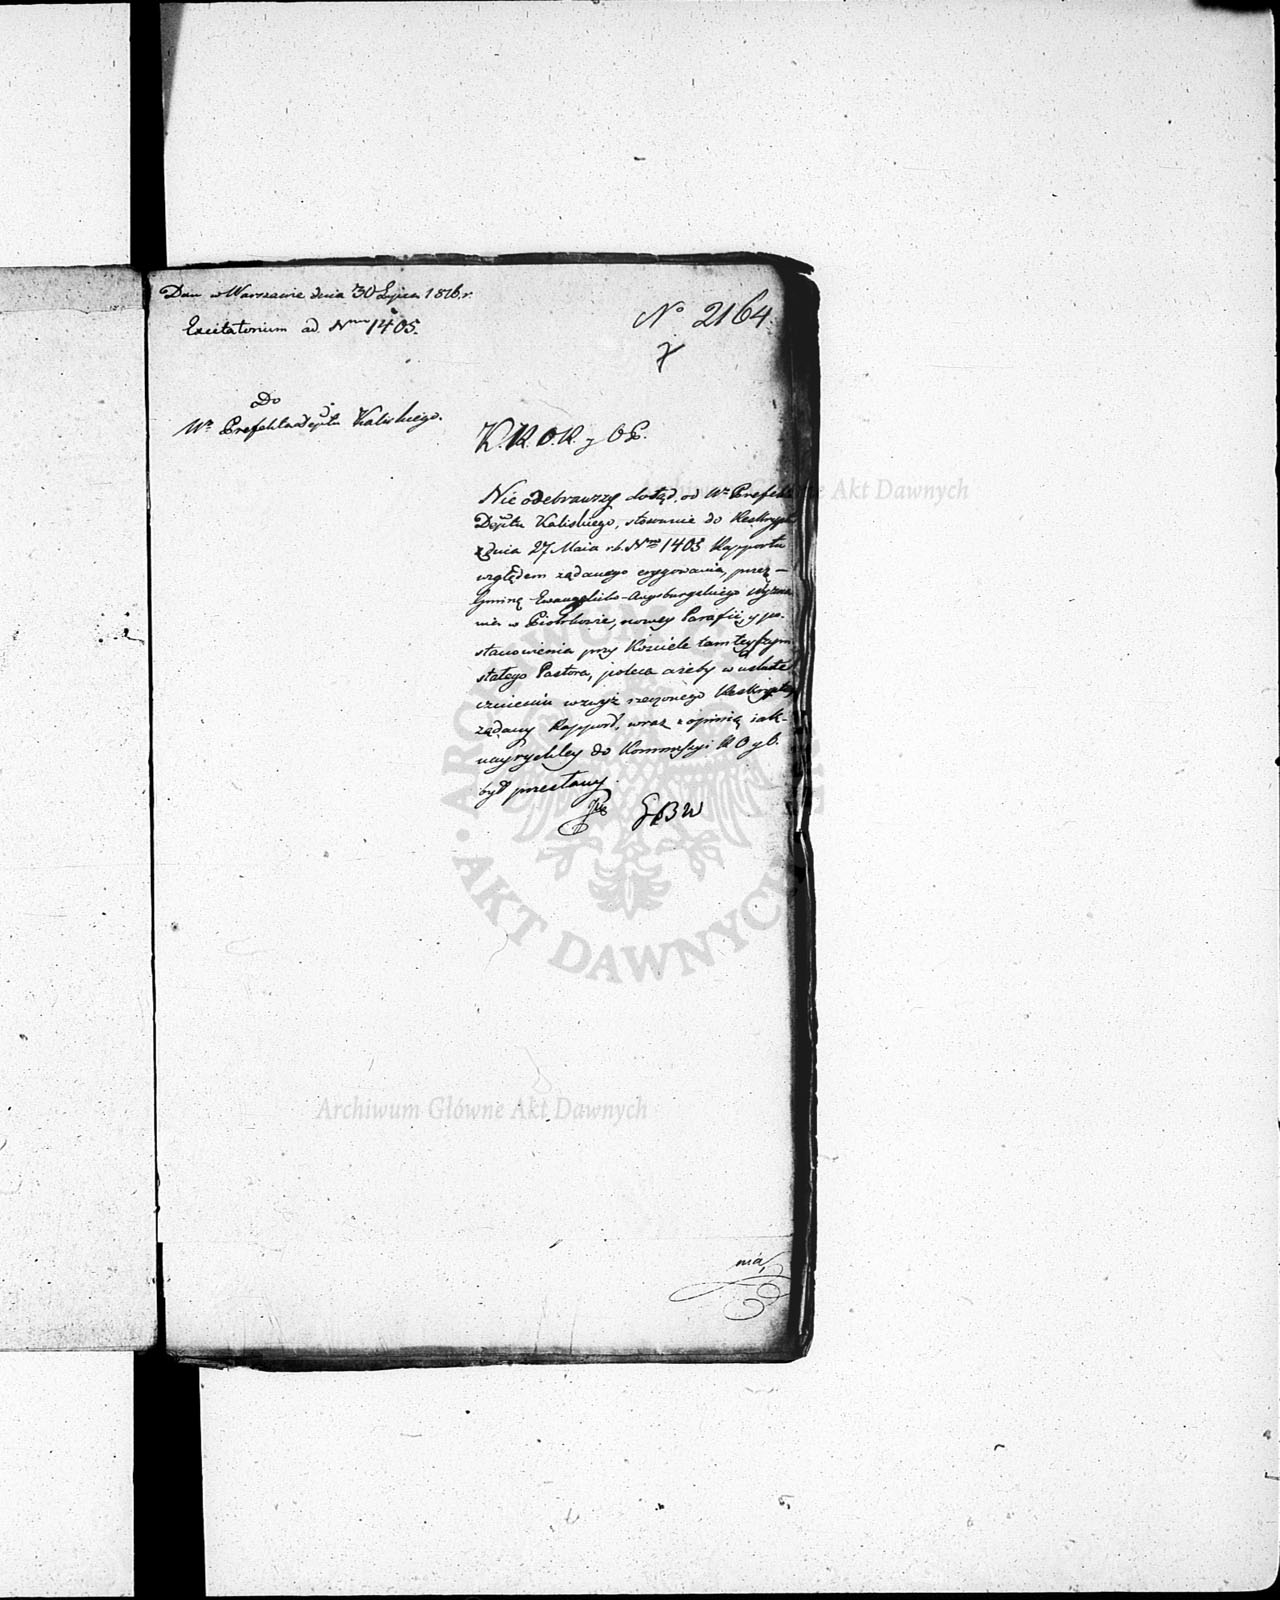 Dan w Warszawie dnia 30 Lipca 1816 r.
Excitatorium ad Nrum 1405.
No 2164
Do
Wo Prefekta Deptu Kaliskiego.
K. R. O. R. y O P.
Nie odebrawszy dotąd, od Wo Prefekta
Deptu Kaliskiego, stosownie do Reskryptu
z dnia 27 Maia r.b. Nro 1405 Rapportu
względem żądanego erygowania, przez
Gminę Ewangelicko-Augsburgskiego wyzna-
nia w Piotrkowie, nowey Parafii, y po-
stanowienia przy Kościele tamteyszym
stałego Pastora, poleca ażeby w
wzwyż rzeczonego Reskryptu
żądany Rapport, wraz z opinią iak-
nayrychley do Kommissyi R O y O.
był przesłany.
GBW
nia,
Archiwum Główne Akt Dawnych
ARCHIWUM GŁÓWNE AKT DAWNYCH
Archiwum Główne Akt Dawnych